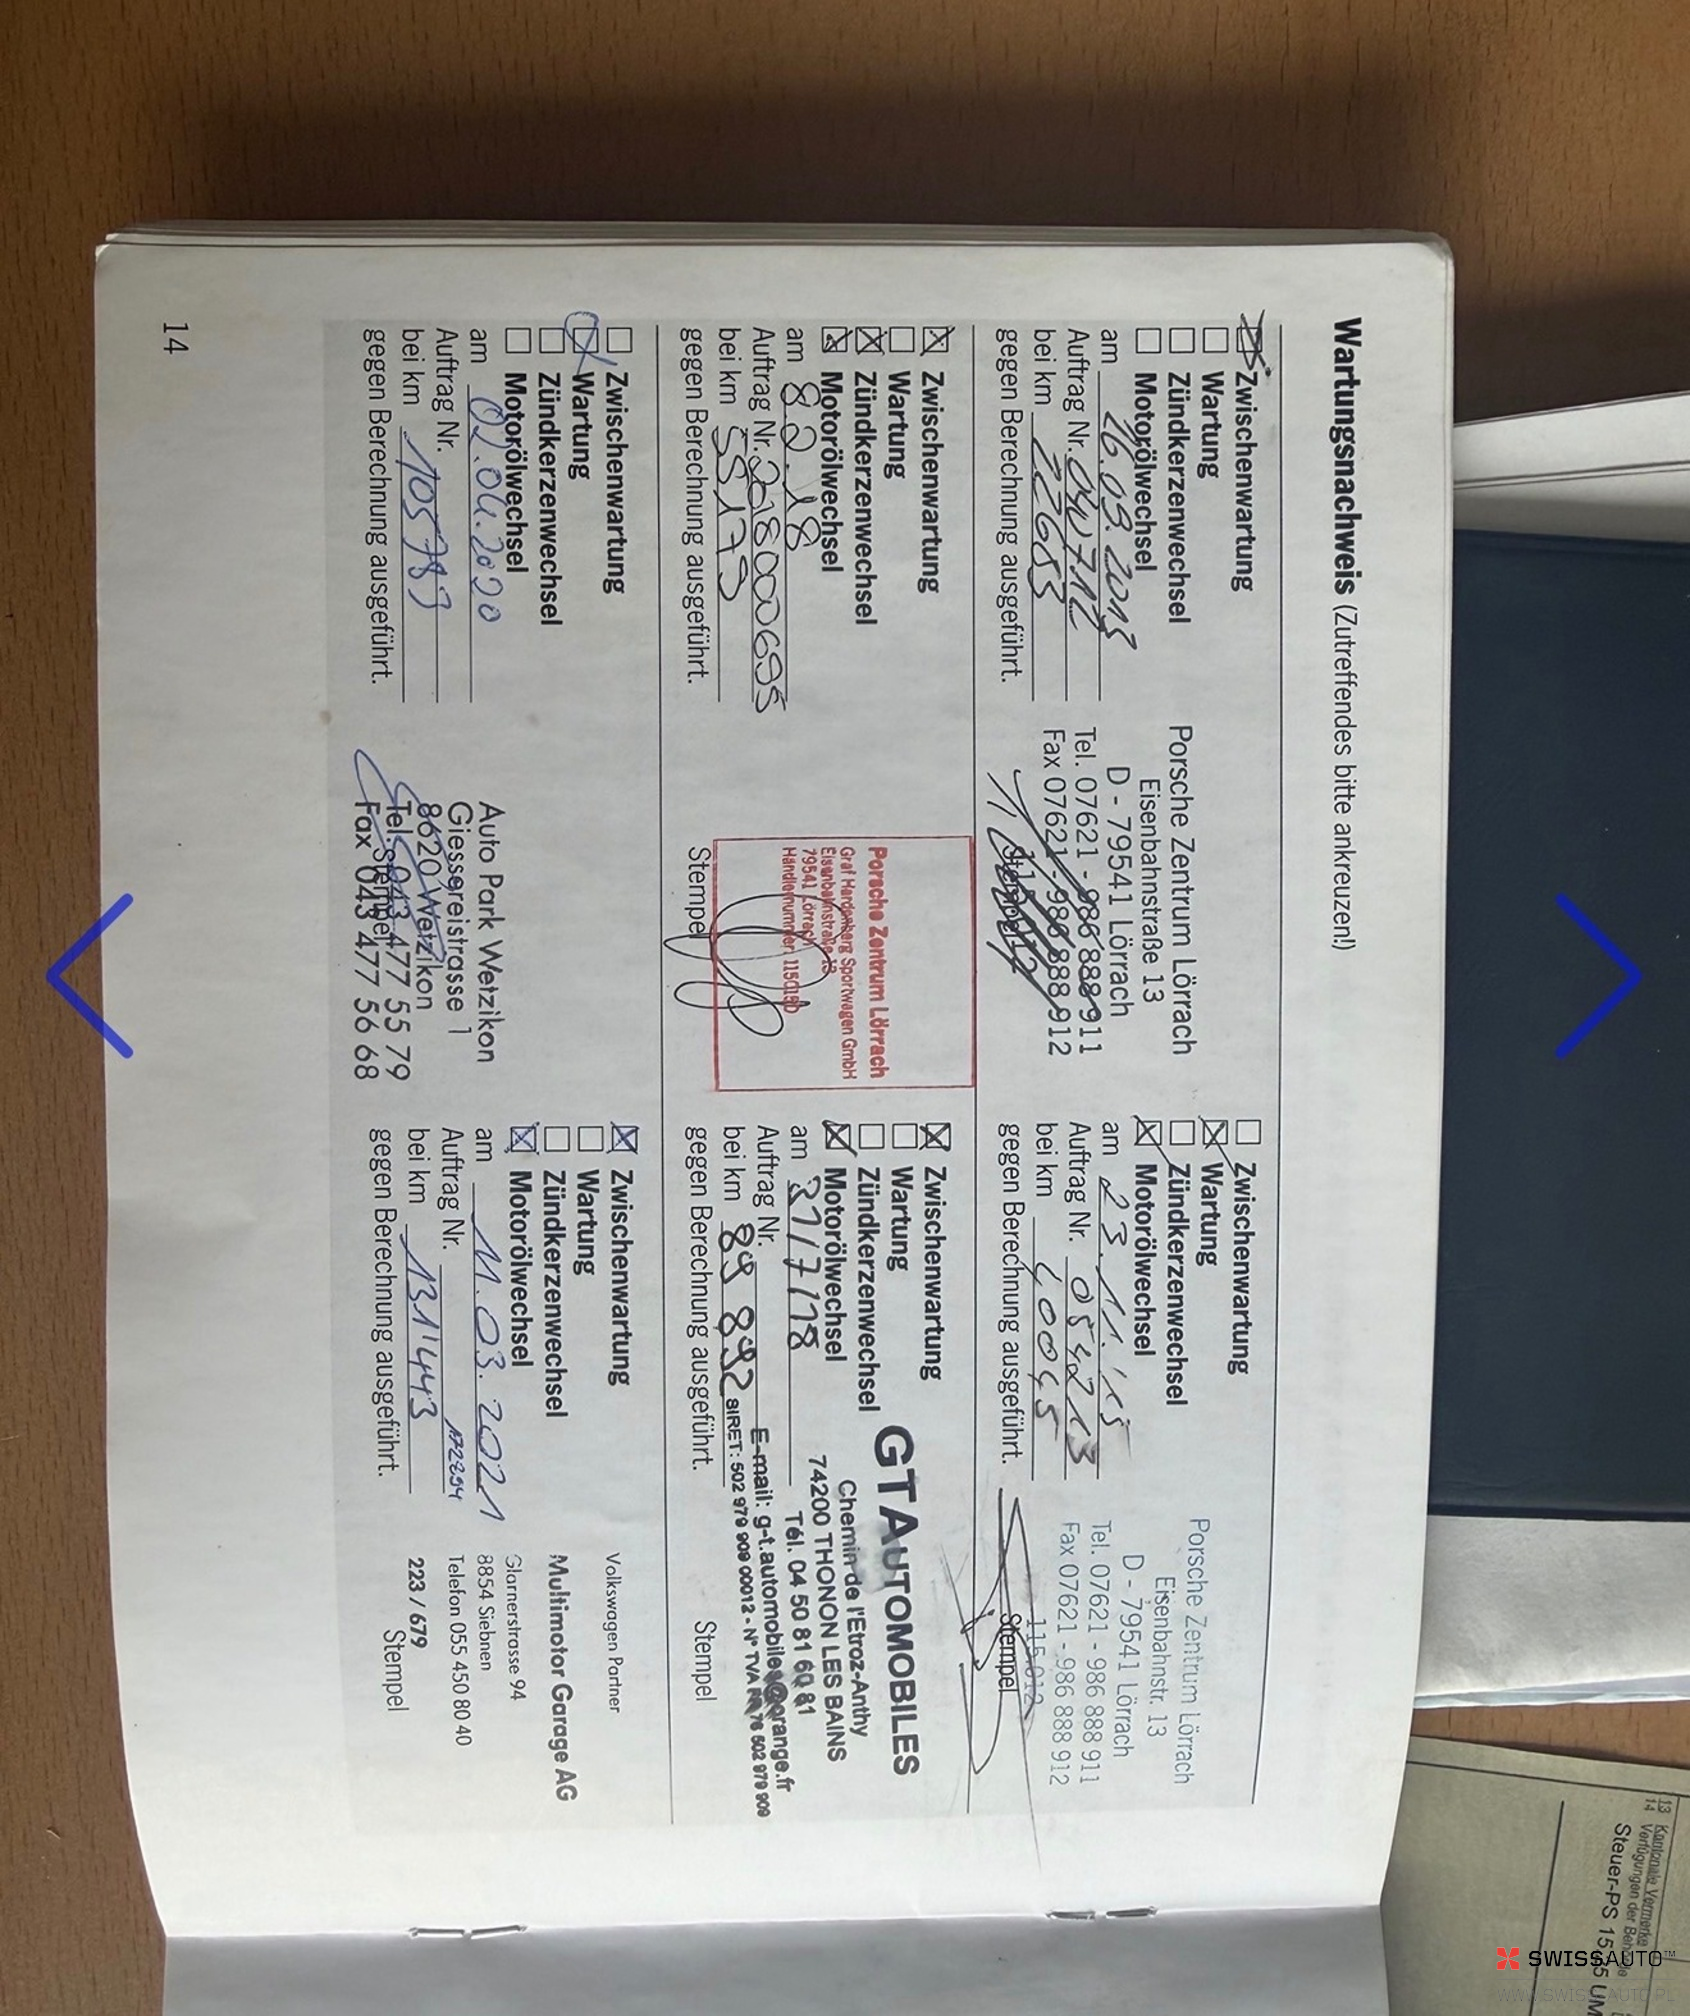 Wartungsnachweis (Zutreffendes bitte ankreuzen!)
Zwischenwartung
Wartung
Zündkerzenwechsel
Motorölwechsel
am
Auftrag Nr. 040712
bei km 22653
gegen Berechnung ausgeführt.
Porsche Zentrum Lörrach
Eisenbahnstraße 13
D - 79541 Lörrach
Tel. 07621 - 986 888 911
Fax 07621 - 986 888 912
Stempel
Zwischenwartung
Wartung
Zündkerzenwechsel
Motorölwechsel
am 23.11.'15
Auftrag Nr. 054213
bei km 40045
gegen Berechnung ausgeführt.
Porsche Zentrum Lörrach
Eisenbahnstr. 13
D - 79541 Lörrach
Tel. 07621 - 986 888 911
Fax 07621 - 986 888 912
115.012
Stempel
Zwischenwartung
Wartung
Zündkerzenwechsel
Motorölwechsel
am 8.2.18
Auftrag Nr. 2018000695
bei km
gegen Berechnung ausgeführt.
Porsche Zentrum Lörrach
Graf Hardenberg Sportwagen GmbH
Eisenbahnstraße 13
79541 Lörrach
Händlernummer
Stempel
Zwischenwartung
Wartung
Zündkerzenwechsel
Motorölwechsel
am 31/7/18
Auftrag Nr.
bei km 89 892
gegen Berechnung ausgeführt.
GT AUTOMOBILES
Chemin de l'Etroz-Anthy
74200 THONON LES BAINS
Tél. 04 50 81 60 81
E-mail: g-t.automobiles@orange.fr
SIRET: 502 979 909 00012 - N° TVA FR 76 502 979 909
Stempel
Zwischenwartung
Wartung
Zündkerzenwechsel
Motorölwechsel
am 02.04.2020
Auftrag Nr.
bei km 105783
gegen Berechnung ausgeführt.
Auto Park Wetzikon
Giessereistrasse 1
8620 Wetzikon
Tel. 043 477 55 79
Fax 043 477 56 68
Stempel
Zwischenwartung
Wartung
Zündkerzenwechsel
Motorölwechsel
am 11.03.2021
Auftrag Nr. 172294
bei km 131'443
gegen Berechnung ausgeführt.
Volkswagen Partner
Multimotor Garage AG
Glarnerstrasse 94
8854 Siebnen
Telefon 055 450 80 40
223 / 679
Stempel
14
13 Kantonale Vermerke
14 Verfügungen der Behörde
Steuer-PS
SWISSAUTO™
WWW.SWISSAUTO.PL